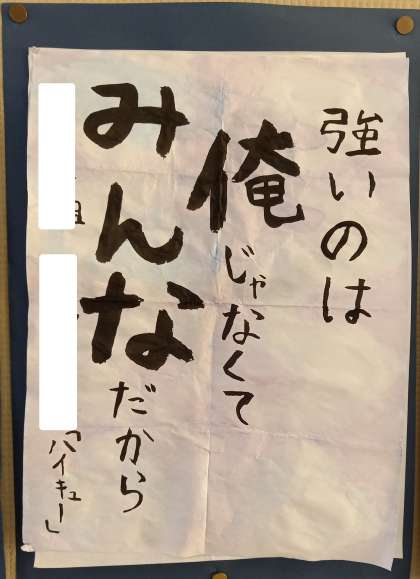 強いのは
俺じゃなくて
みんなだから
「ハイキュー」